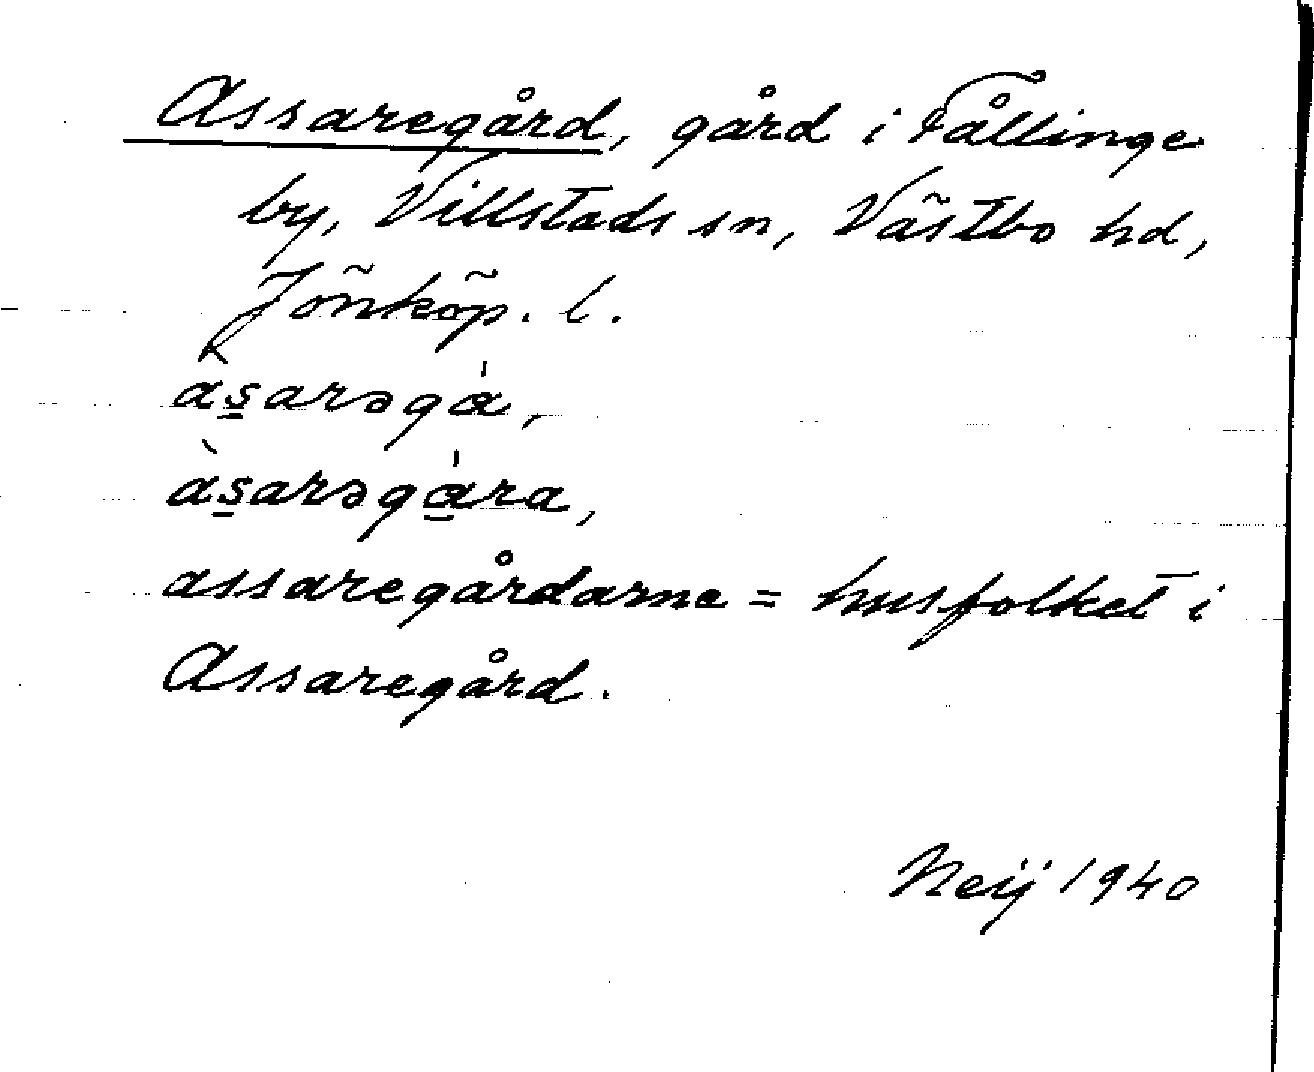 Assaregård, gård i Fållinge
by, Villstads sn, Västbo hd,
Jönköp. l.
às̲arəgá,
às̲arəgá̲ra,
assaregårdarne = husfolket i
Assaregård.
Neij 1940